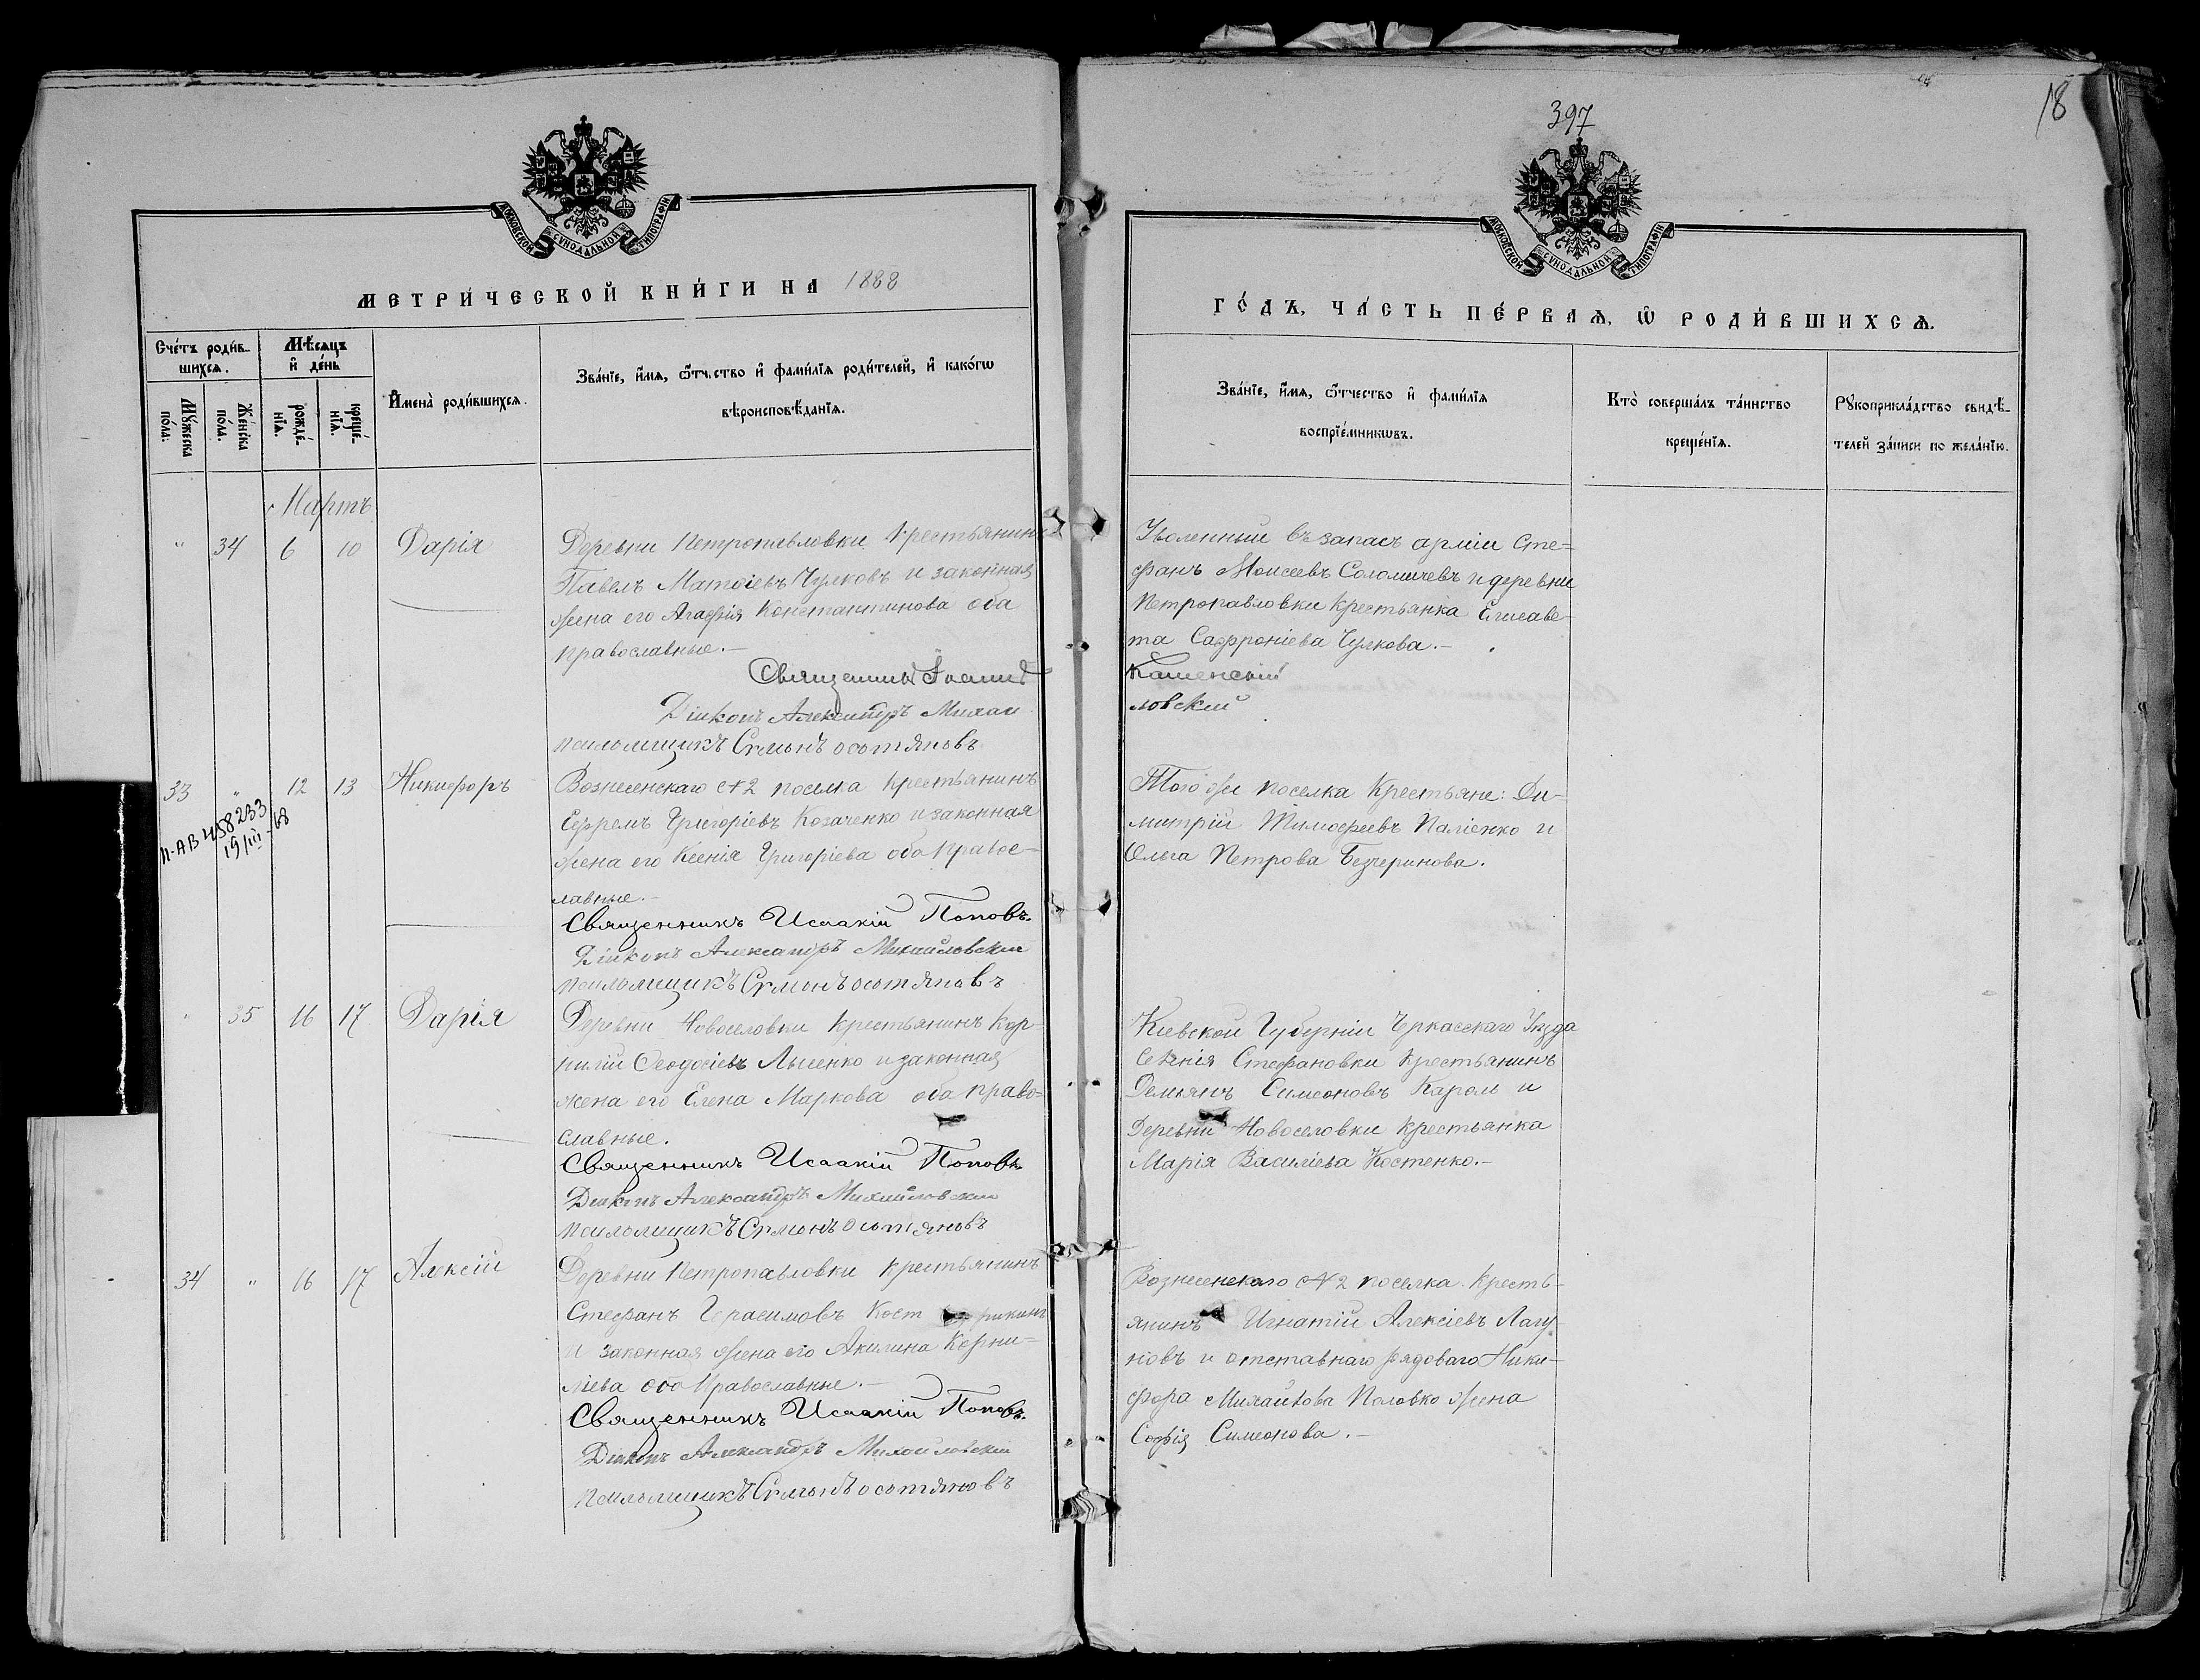 397
18
МОСКОВСКОЙ СѴНОДАЛЬНОЙ ТИПОГРАФІИ
МЕТРИ́ЧЕСКОЙ КНИ́ГИ НА 1888
Счéтъ роди́в-
шихсѧ.
Мѣ́сѧцъ
и҆ дéнь
Мꙋ́жеска пóла.
Жéнска пóла.
рождé-
нїѧ.
крещé-
нїѧ.
И҆мена̀ роди́вшихсѧ.
Звáнїе, и҆́мѧ, ѻ҆́тчество и҆ фами́лїѧ роди́телей, и҆ какóгѡ
вѣроисповѣ́данїѧ.
Мартъ
" 34 6 10 Дарія
Деревни Петропавловки Крестьянинъ
Павелъ Матѳіевъ Чулковъ и законная
жена его Агафія Константинова оба
православные.–
Священникъ Іоаннъ
Діаконъ Александръ Михаи
псаломщикъ Сѵмонъ Осотяновъ
33 " 12 13 Никифоръ
П-АВ 458233
19/III-68
Вознесенскаго №2 поселка Крестьянинъ
Ефремъ Григоріевъ Козаченко и законная
жена его Ксенія Григоріева оба правос-
лавные.–
Священникъ Исаакій Поповъ.
Діаконъ Александръ Михайловскій
псаломщикъ Сѵмонъ Осотяновъ
" 35 16 17 Дарія
Деревни Новоселовки Крестьянинъ Кор-
нилій Ѳеодосіевъ Лысенко и законная
жена его Елена Маркова оба право-
славные.
Священникъ Исаакій Поповъ
Діаконъ Александръ Михайловскій
псаломщикъ Сѵмонъ Осотяновъ
34 " 16 17 Алексій
Деревни Петропавловки Крестьянинъ
Стефанъ Герасимовъ Кост
и законная жена его Акилина Корни-
ліева оба Православные.–
Священникъ Исаакій Поповъ.
Діаконъ Александръ Михайловскій
псаломщикъ Сѵмонъ Осотяновъ
МОСКОВСКОЙ СѴНОДАЛЬНОЙ ТИПОГРАФІИ
ГÓДЪ, ЧÁСТЬ ПÉРВАѦ, Ѡ҆ РОДИ́ВШИХСѦ.
Звáнїе, и҆́мѧ, ѻ҆́тчество и҆ фами́лїѧ
воспрїéмникѡвъ.
Ктò совершáлъ тáинство
крещéнїѧ.
Рꙋкоприклáдство свидѣ́-
телей зáписи по желáнїю.
Уволенный въ запасъ арміи Сте=
фанъ Моисеевъ Соломичевъ и деревни
Петропавловки крестьянка Елисаве-
та Сафроніева Чулкова.–
Каменскій
ловскій
Того же поселка Крестьяне: Ди-
митрій Тимофеевъ Паліенко и
Ольга Петрова Безчеринова.
Кіевской Губерніи Черкасскаго Уѣзда
Селенія Стефановки Крестьянинъ
Демьянъ Симеоновъ Кароль и
Деревни Новоселовки крестьянка
Марія Василіева Костенко.–
Вознесенскаго №2 поселка Кресть-
янинъ Игнатій Алексіевъ Лагу
новъ и отставнаго рядоваго Ники-
фора Михайлова Половко жена
Софія Симеонова.–